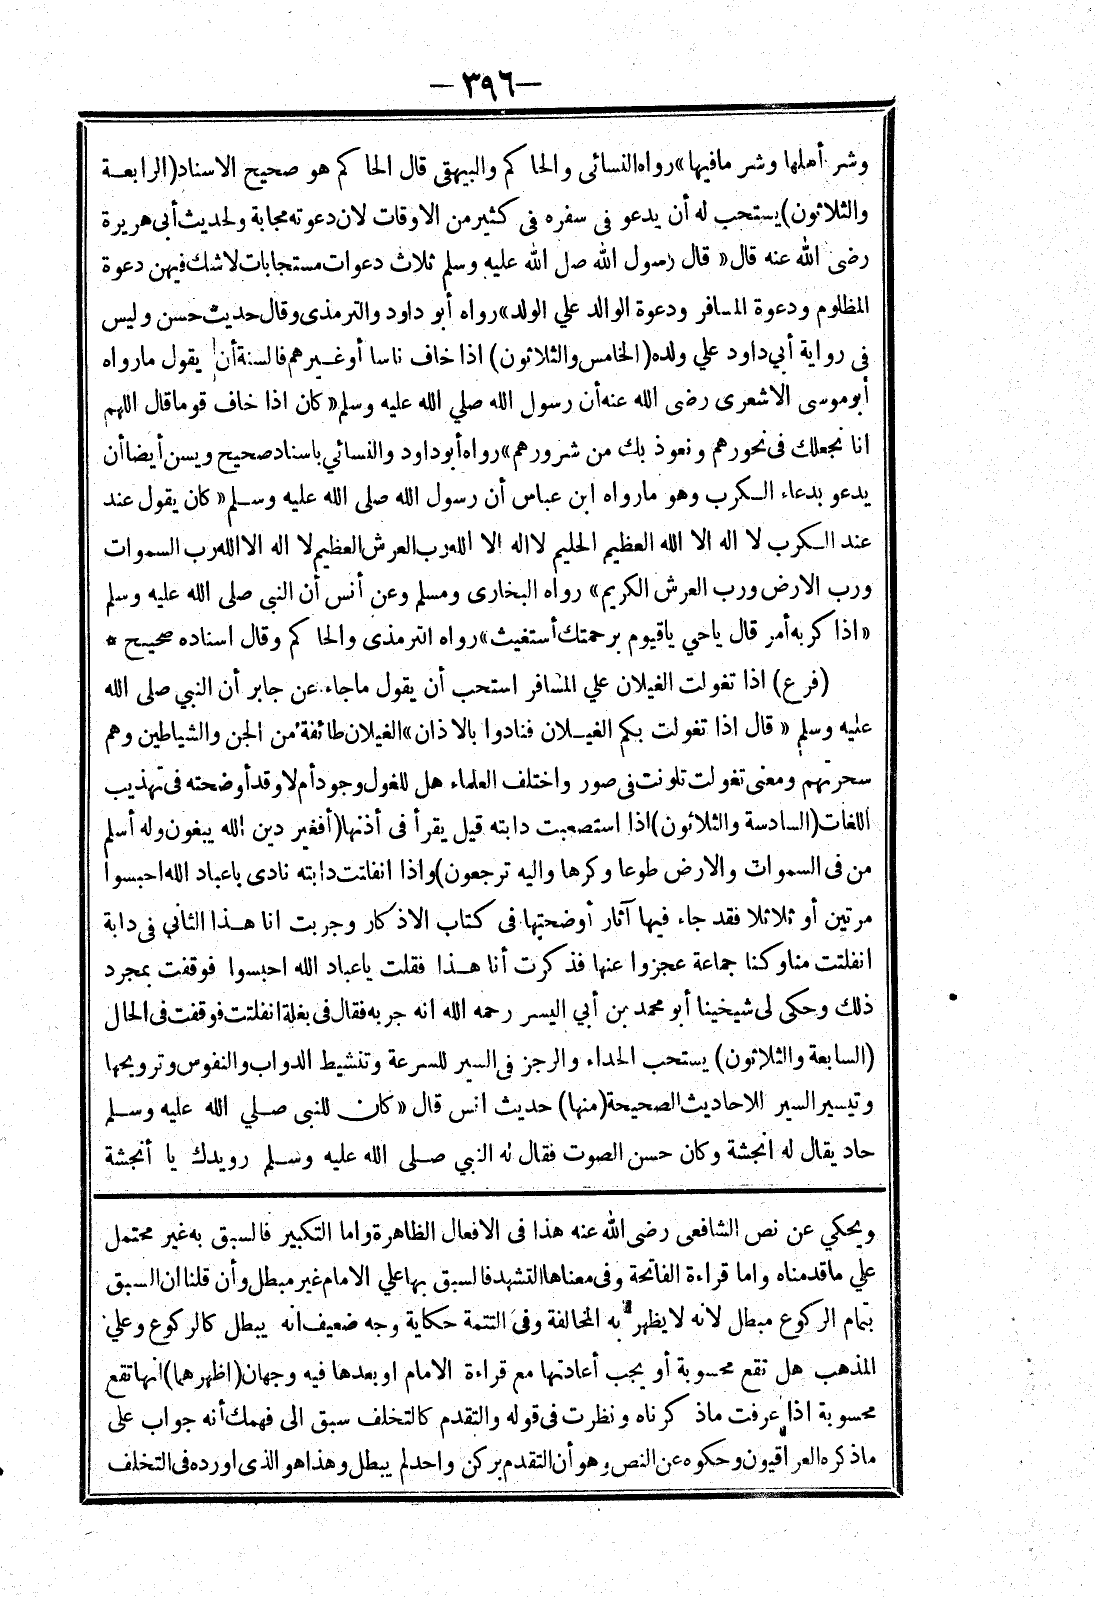 —٣٩٦—
وشر أهلها وشر مافيها» رواه النسائى والحاكم والبيهقى قال الحاكم هو صحيح الاسناد (الرابعة
والثلاثون) يستحب له أن يدعو فى سفره فى كثير من الاوقات لان دعوته مجابة ولحديث أبى هريرة
رضى الله عنه قال «قال رسول الله صل الله عليه وسلم ثلاث دعوات مستجابات لاشك فيهن دعوة
المظلوم ودعوة المسافر ودعوة الوالد علي الولد» رواه أبو داود والترمذى وقال حديث حسن وليس
فى رواية أبي داود علي ولده (الخامس والثلاثون) اذا خاف ناسا أو غيرهم فالسنة أن يقول مارواه
أبوموسى الاشعرى رضى الله عنه أن رسول الله صلي الله عليه وسلم «كان اذا خاف قوما قال اللهم
انا نجعلك فى نحورهم ونعوذ بك من شرورهم» رواه أبوداود والنسائي باسناد صحيح ويسن أيضا أن
يدعو بدعاء الكرب وهو مارواه ابن عباس أن رسول الله صلى الله عليه وسلم «كان يقول عند
عند الكرب لا اله الا الله العظيم الحليم لا اله الا الله رب العرش العظيم لا اله الا الله رب السموات
ورب الارض ورب العرش الكريم» رواه البخارى ومسلم وعن أنس أن النبى صلى الله عليه وسلم
«اذا كربه أمر قال ياحي ياقيوم برحمتك أستغيث» رواه الترمذى والحاكم وقال اسناده صحيح *
(فرع) اذا تغولت الغيلان علي المسافر استحب أن يقول ماجاء عن جابر أن النبي صلى الله
عليه وسلم «قال اذا تغولت بكم الغيلان فنادوا بالاذان» الغيلان طائفة من الجن والشياطين وهم
سحرتهم ومعنى تغولت تلونت فى صور واختلف العلماء هل للغول وجود أم لا وقد أوضحته فى تهذيب
اللغات (السادسة والثلاثون) اذا استصعبت دابته قيل يقرأ فى أذنها (أفغير دين الله يبغون وله أسلم
من فى السموات والارض طوعا وكرها واليه ترجعون) واذا انفلتت دابته نادى ياعباد الله احبسوا
مرتين أو ثلاثلا فقد جاء فيها آثار أوضحتها فى كتاب الاذكار وجربت انا هذا الثاني فى دابة
انفلتت منا وكنا جماعة عجزوا عنها فذكرت أنا هذا فقلت ياعباد الله احبسوا فوقفت بمجرد
ذلك وحكى لى شيخينا أبو محمد بن أبي اليسر رحمه الله انه جربه فقال فى بغلة انفلتت فوقفت فى الحال
(السابعة والثلاثون) يستحب الحداء والرجز فى السير للسرعة وتنشيط الدواب والنفوس وترويحها
وتيسير السير للاحاديث الصحيحة (منها) حديث انس قال «كان للنبى صلي الله عليه وسلم
حاد يقال له انجشة وكان حسن الصوت فقال له النبي صلى الله عليه وسلم رويدك يا أنجشة
ويحكي عن نص الشافعى رضى الله عنه هذا فى الافعال الظاهرة واما التكبير فالسبق به غير محتمل
علي ماقدمناه واما قراءة الفاتحة وفى معناها التشهد فالسبق بها علي الامام غير مبطل وأن قلنا ان السبق
بتمام الركوع مبطل لانه لا يظهر به المخالفة وفى التتمة حكاية وجه ضعيف انه يبطل كالركوع وعلي
المذهب هل تقع محسوبة أو يجب أعادتها مع قراءة الامام او بعدها فيه وجهان (اظهرهما) انها تقع
محسوبة اذا عرفت ماذكرناه ونظرت فى قوله والتقدم كالتخلف سبق الى فهمك أنه جواب على
ماذكره العراقيون وحكوه عن النص وهو أن التقدم بركن واحد لم يبطل وهذا هو الذى اورده فى التخلف